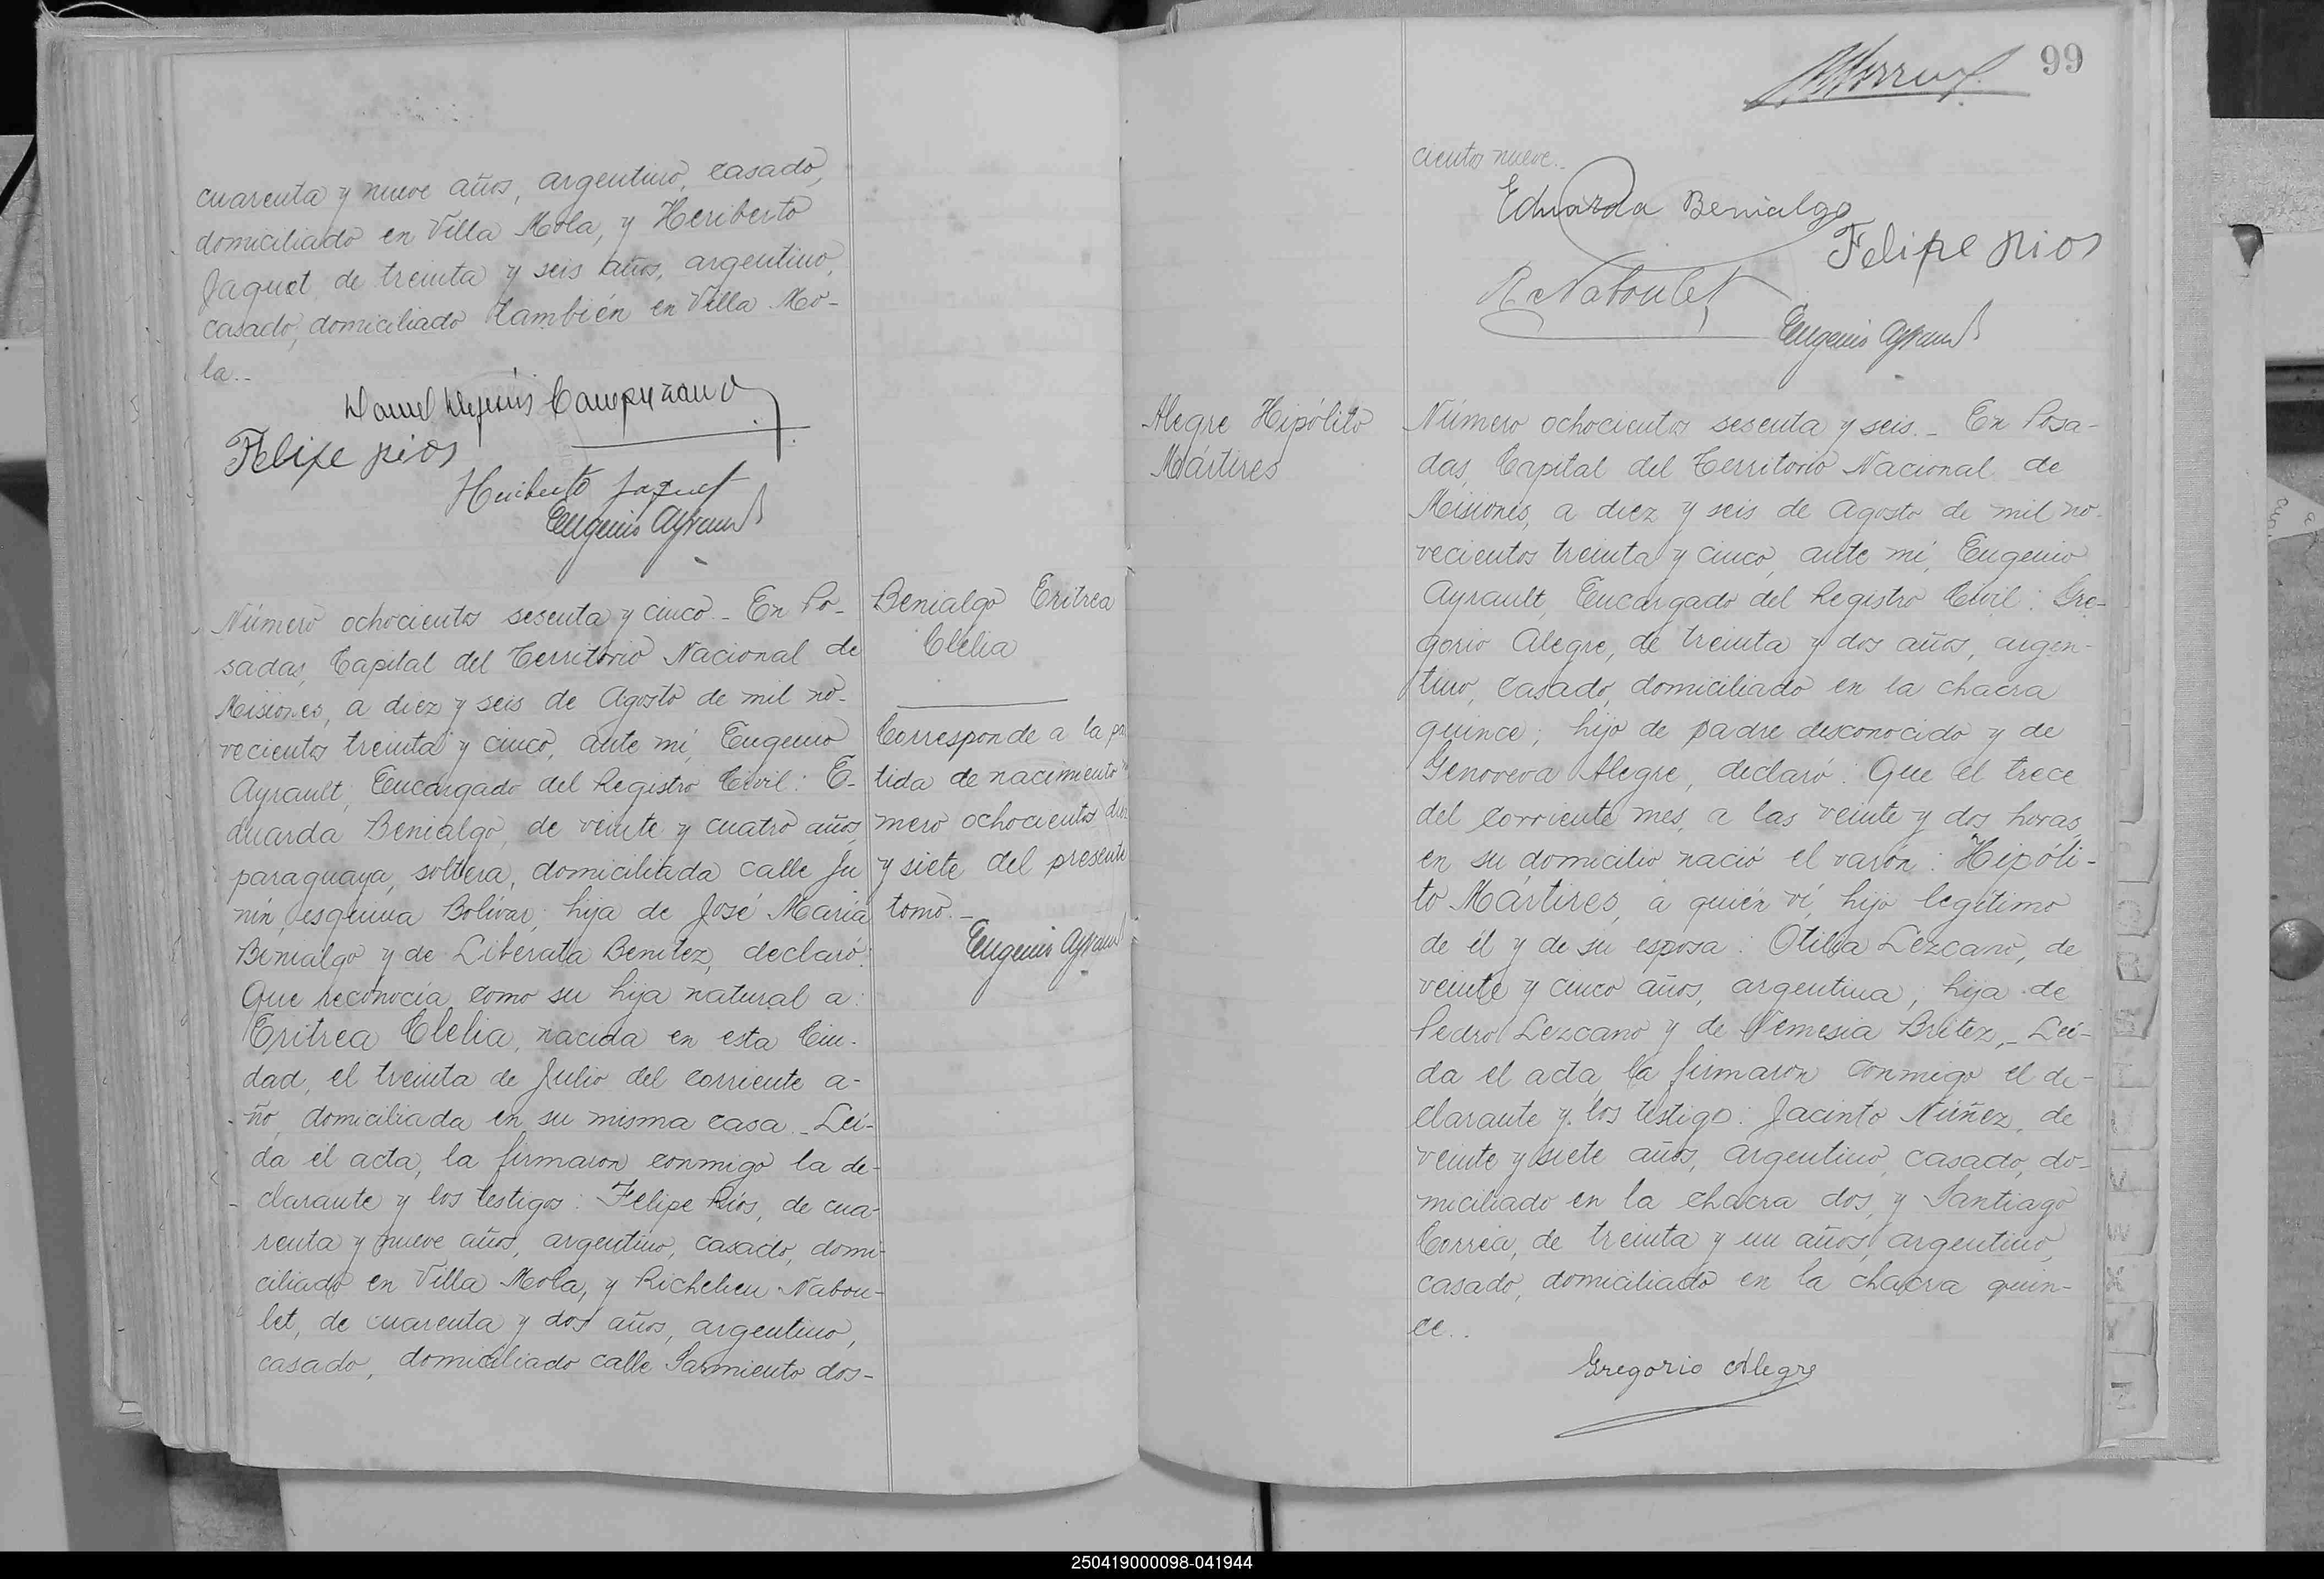 cuarenta y nueve años, argentino, casado,
domiciliado en Villa Mola, y Heriberto
Jaquet de treinta y seis años, argentino,
casado, domiciliado también en Villa Mo-
la..
Felipe rios
Heriberto Jaquet
Eugenio Ayrault
Número ochocientos sesenta y cinco.- En Po-
sadas, Capital del Territorio Nacional de
Misiones, a diez y seis de Agosto de mil no-
vecientos treinta y cinco, ante mi, Eugenio
Ayrault, Encargado del Registro Civil: E-
duarda Benialgo, de veinte y cuatro años,
paraguaya, soltera, domiciliada calle Ju
nín, esquina Bolívar; hija de José María
Benialgo y de Liberata Benitez, declaró:
Que reconocía como su hija natural a:
Eritrea Clelia, nacida en esta Ciu-
dad, el treinta de Julio del corriente a-
ño, domiciliada en su misma casa.- Leí-
da el acta, la firmaron conmigo la de-
clarante y los testigos: Felipe Ríos, de cua-
renta y nueve años, argentino, casado, domi-
ciliado en Villa Mola, y Richelieu Nabou-
let, de cuarenta y dos años, argentino,
casado, domiciliado calle Sarmiento dos-
Benialgo Eritrea
Clelia
Corresponde a la pa
tida de nacimiento
mero ochocientos diez
y siete del presente
tomo.-
Eugenio Ayrault
99
cientos nueve.-
Eduarda Benialgo
Felipe rios
R. Naboulet
Eugenio Ayrault
Alegre Hipólito
Mártires
Número ochocientos sesenta y seis.- En Posa-
das, Capital del Territorio Nacional de
Misiones, a diez y seis de Agosto de mil no-
vecientos treinta y cinco, ante mi, Eugenio
Ayrault, Encargado del Registro Civil: Gre-
gorio Alegre, de treinta y dos años, argen-
tino, casado, domiciliado en la chacra
quince; hijo de padre desconocido y de
Genoveva Alegre, declaró: Que el trece
del corriente mes, a las veinte y dos horas,
en su domicilio nació el varón: Hipóli-
to Mártires, a quién ví, hijo legítimo
de él y de su esposa: Otilia Lezcano, de
veinte y cinco años, argentina, hija de
Pedro Lezcano y de Nemesia Britez,- Leí-
da el acta la firmaron conmigo el de-
clarante y los testigo: Jacinto Núñez, de
veinte y siete años, argentino, casado, do-
miciliado en la chacra dos, y Santiago
Correa, de treinta y un años, argentino,
casado, domiciliado en la chacra quin-
ce..
Gregorio Alegre
250419000098-041944